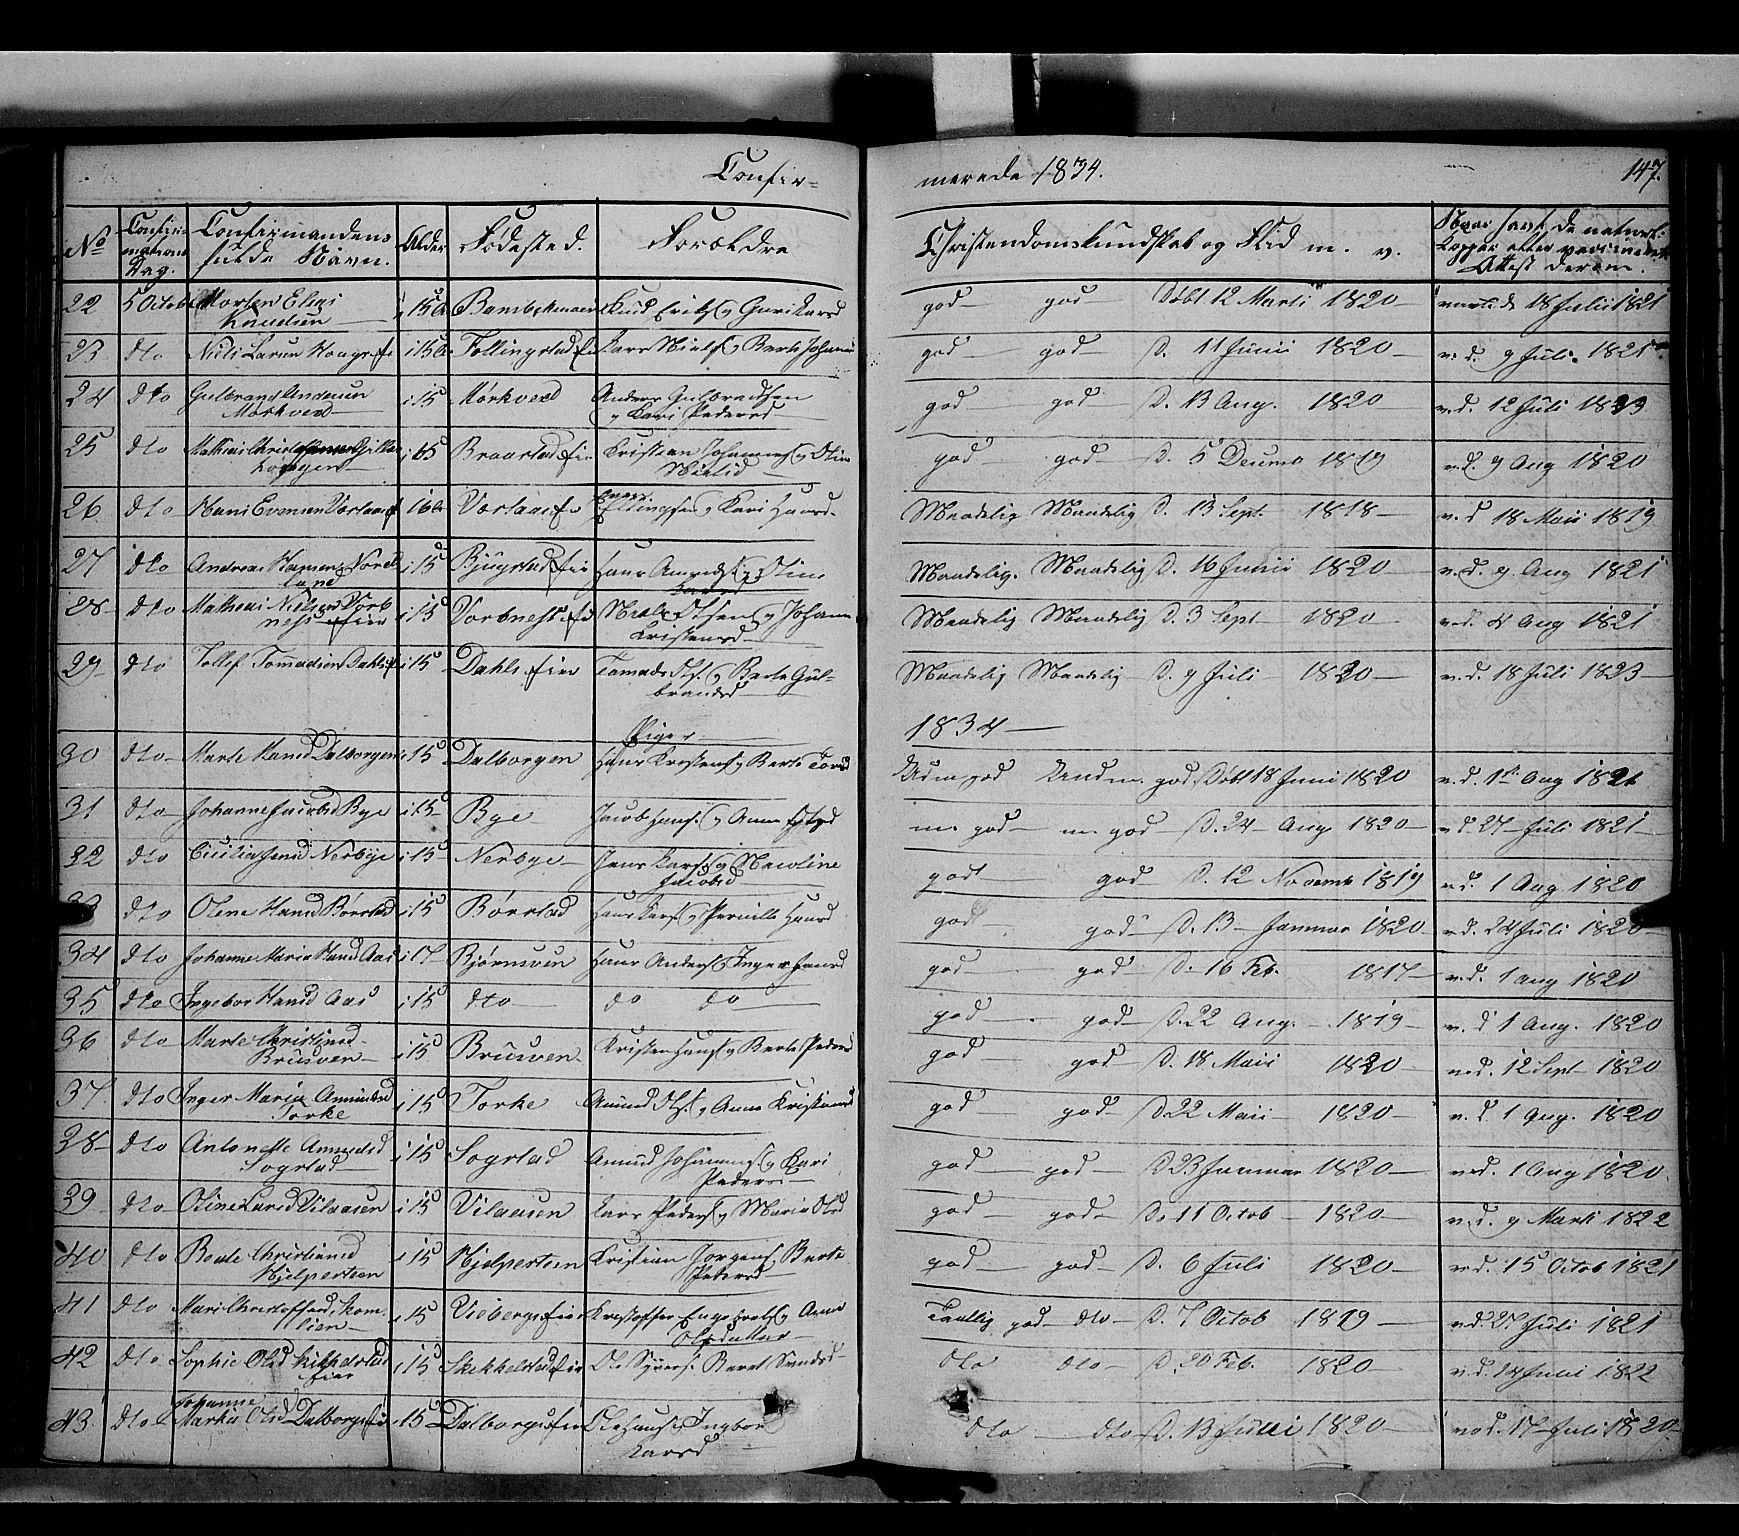 Confir=
merede 1834.
147.
No
Confir=
mations
Dag.
Confirmandens
fulde Navn.
Alder
Fødested.
Forældre
Christendomskundskab og Flid m. v.
Naar havt de naturl.
Kopper eller vaccineret
Attest derom.
22 5 October Morten Elias Knudsen i 15 Knud Eriks. og Guri Larsd god god Døbt 12 Marti 1820 vacti d. 18 Julii 1821
23 dto Niels Larsen i 15 Tollingstad eie Lars Niels. og Berte Johannes god god D. 11 Junii 1820 v. d. 9 Juli 1821
24 dto Gulbrand Andersen Mørkved i 15 Mørkved Anders Gulbrandsen og Kari Pedersd god god D. 13 Aug. 1820 v.d. 12 Juli 1833
25 dto Mathias i 15 Braastad eie Kristian Johannes. og Oline Nielsd god god D. 5 Decemb 1819 v.d. 9 Aug 1820
26 dto Hans Evensen i 16 Even Ellingsen og Kari Hansd. Maadelig Maadelig D. 13 Sept. 1818 v. d 18 Maii 1819
27 dto Andreas Hansen Nordland i 15 Bjugstad eie Hans Amunds. og Oline Larsd Maadelig. Maadelig D. 16 Junii 1820 v. d. 9. Aug 1821
28 dto Mathias Nielsen Vorbness eier i 15 Vorbness eie Niels Olsen og Johanne Kristensd Maadelig Maadelig D. 3 Sept 1820 v.d. 4 Aug 1821
29 dto Tollef Tomassen Dahls i 15 Dahls eier Tomas Ols. og Berte Gulbrandsd Maadelig Maadelig D. 9 Juli 1820 v.d. 18 Juli 1823
Piger
1834
30 dto Marte Hansd Dalborgen i 15 Dalborgen Hans Kristens. og Berte Torsd Udm god Udm. god Døbt 18 Juni 1820 v.d. 1 Aug 1821
31 dto Johanne Jacobsd Bye i 15 Bye Jacob Hans. og Anne m. god m. god D. 24 Aug 1820 v.d 27 Juli 1821
32 dto Cicilia Jensd Nerbye i 15 Nerbye Jens Lars. og Nicoline Jacobsd godt god D. 12 Novemb 1819 v.d. 1 Aug 1820
33 dto Olene Hansd Børstad i 15 Børstad Hans Lars. og Pernille Hansd god god D. 13 Januar 1820 v.d. 24 Juli 1820
34 dto Johanne Maria Hansd Aas i 17 Bjørnsven Hans Anders. og Inger Hansd god god D. 16 Feb. 1817 v.d. 1 aug 1820
35 dto Ingebor Hansd Aas i 15 dto do do god god D. 22 Aug. 1819 v. d 1 Aug. 1820
36 dto Marte Christensd Brusven i 15 Brusven Kristen Hans. og Berte Pedersd god god D. 18 Maii 1820 v.d. 12 Sept 1820
37. dto Inger Maria Amundsd Torke i 15 Torke Amund Ols. og Anne Kristiansd god god D. 22 Maii 1820 v. d 1 Aug. 1820
38 dto Antonette Amundsd Sogstad i 15 Sogstad Amund Johannes. og Kari Pedersd god god D 23 Januar 1820 v.d. 1 Aug 1820.
39 dto Oline Larsd Vilaasen i 15 Vilaasen Lars Peders. og Maria Olsd god god D. 11 Octob 1820 v.d. 9 Marti 1822
40 dto Beate Christiansd Hjelpersteen i 15 Hjelpersteen Kristian Jørgens. Berte Pedersd god god D. 6 Juli 1820 v.d. 15 Octob 1821
41 dto Mari Christoffersd i 15 Vieberg eier Kristoffer Engebrets. og Anne Olsdatter Taalig god dto D. 7 Octob 1819 v.d. 27 Juli 1821
42 dto Sophie Olsd Skikkelstad eier i 15 Skikkelstad eier Ole Syvers. Beret dto dto D. 20 Feb. 1820 v.d. 14 Juni 1822
43 dto Johanne Marthe Olsd Dalborgs i 15 Dalborgs eier Ole Hans. Ingbor Larsd dto dto D. 13 Julii 1820 v.d. 17 Juli 1820